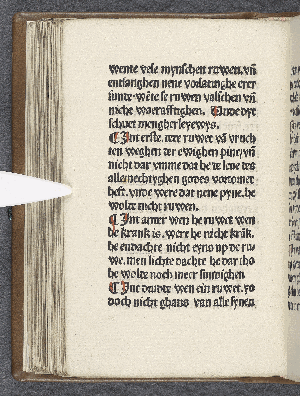 wente vele mynschen ruwen. vñ
entfanghen nene vorlatinghe erer
sunde. wẽte se ruwen valschen vñ
nicht waeraftighen. Unde dyt
schuet mengherleyewys.
¶ Int erste. atre ruwet vñ vruch
ten weghen der ewighen pine. vñ
nicht dar vmme dat he te leue des
allemechtyghen godes vortornet
heft. vnde were dat nene pyne. he
wolte nicht ruwen.
¶ Int ander wen he ruwet wen
he krank is. were he nicht krãk.
he endachte nicht eyns up de ru
we. men lichte dachte he dar tho
he wolte noch meer sundighen
¶ Int drudde wen ein ruwet. vo
doch nicht ghans van alle synen